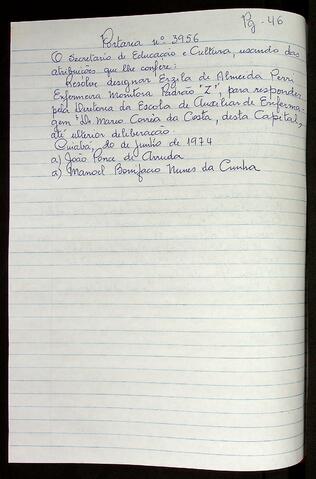 Pg - 46
Portaria nº 3956
O Secretário de Educação e Cultura, usando das
atribuições que lhe confere:
Resolve designar Ezzila de Almeida Perri,
Enfermeira Monitora Padrão "Z", para responder
pela Diretoria da Escola de Auxiliar de Enferma-
gem "Dr. Mario Corrêa da Costa, desta Capital,
até ulterior deliberação.
Cuiabá, 10 de junho de 1974
a) João Ponce de Arruda
a) Manoel Bonifacio Nunes da Cunha